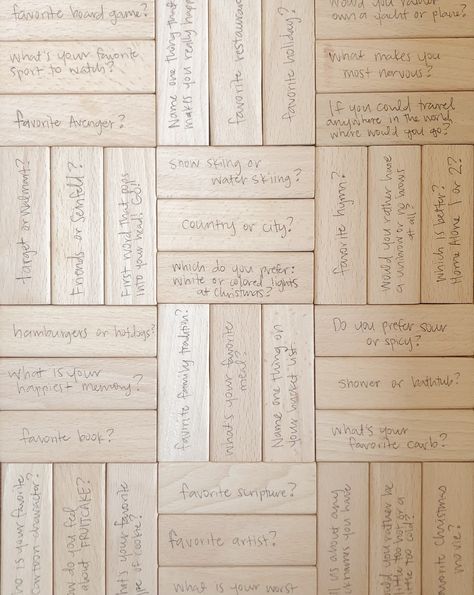 favorite board game?
what's your favorite
sport to watch?
favorite Avenger?
Name one thing that
makes you really happy
favorite restaurant
favorite holiday?
Would you rather
own a yacht or plane?
What makes you
most nervous?
If you could travel
anywhere in the world
where would you go?
target or walmart?
Friends or Seinfeld?
First word that pops
into your head. Go!
snow skiing or
water skiing?
country or city?
which do you prefer:
white or colored lights
at Christmas?
favorite hymn?
Would you rather have
a unibrow or no brows
at all?
which is better?
Home Alone 1 or 2?
hamburgers or hotdogs?
what is your
happiest memory?
favorite book?
favorite family tradition?
what's your favorite
meal?
Name one thing on
your bucket list.
Do you prefer sour
or spicy?
shower or bathtub?
what's your
favorite carb?
ho is your favorite
cartoon character?
ow do you feel
about FRUITCAKE?
hat's your favorite
pe of cookie?
favorite scripture?
favorite artist?
what is your worst
ell us about any
icknames you have
ould you rather be
little too hot or a
ttle too cold?
favorite Christmas
movie?